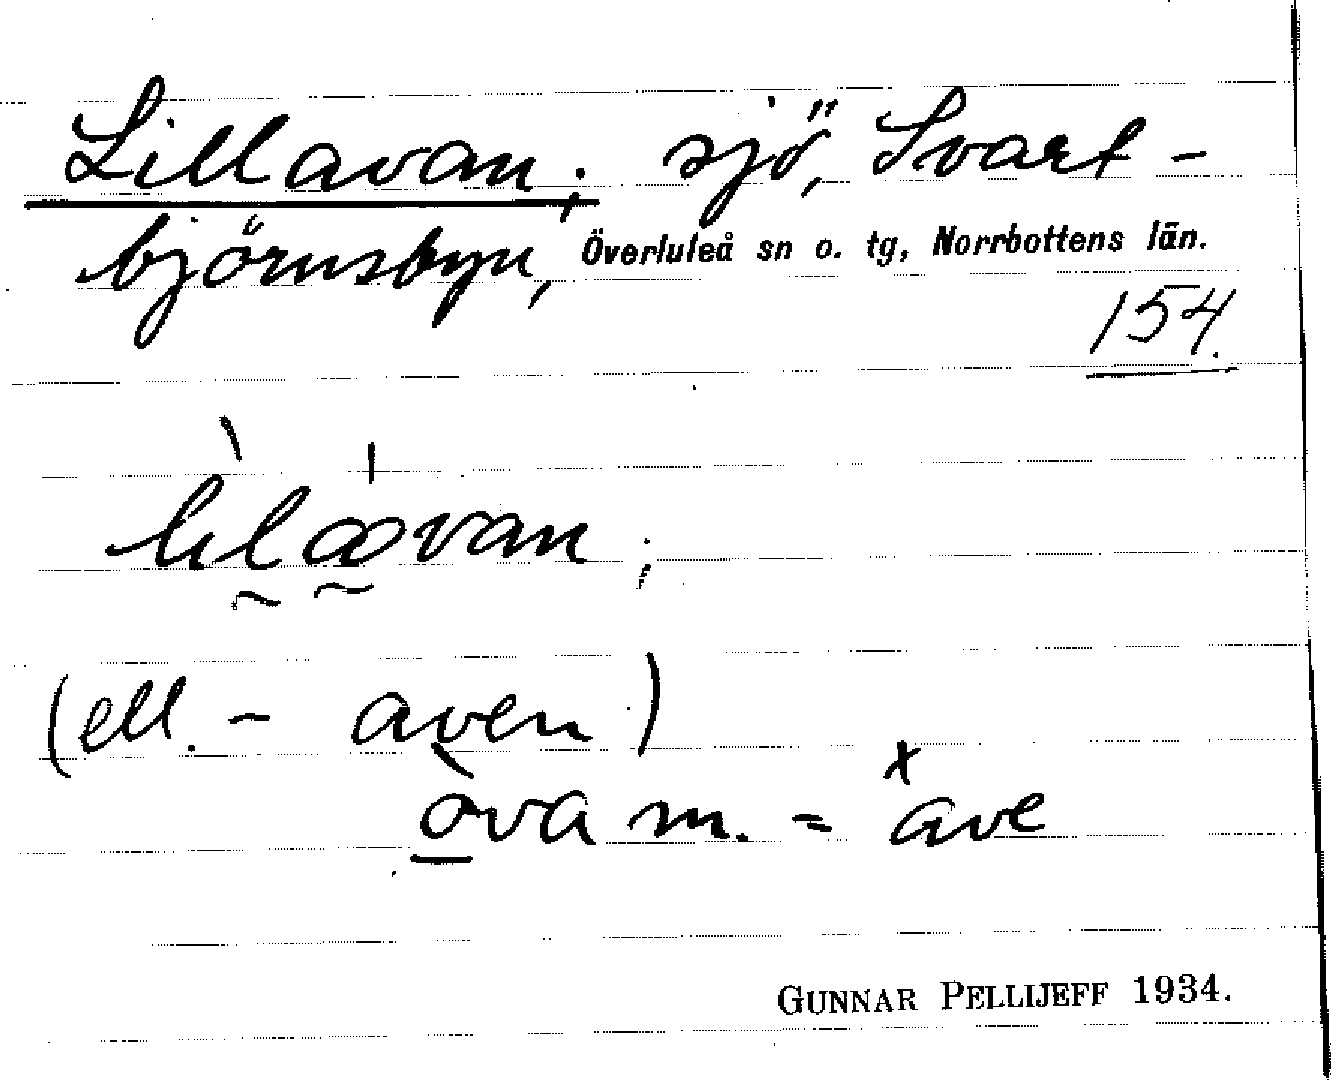 Lillavan; sjö, Svart-
björnsbyn, Överluleå sn o. tg, Norrbottens län.
154.
(ell. - aven)
òva m. = ˣave
GUNNAR PELLIJEFF 1934.